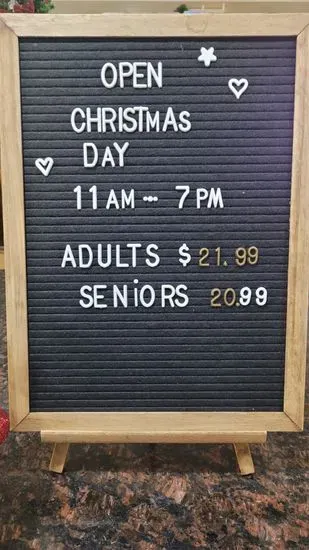 OPEN
CHRISTMAS
DAY
11 AM --- 7 PM
ADULTS $ 21.99
SENiORS 20.99